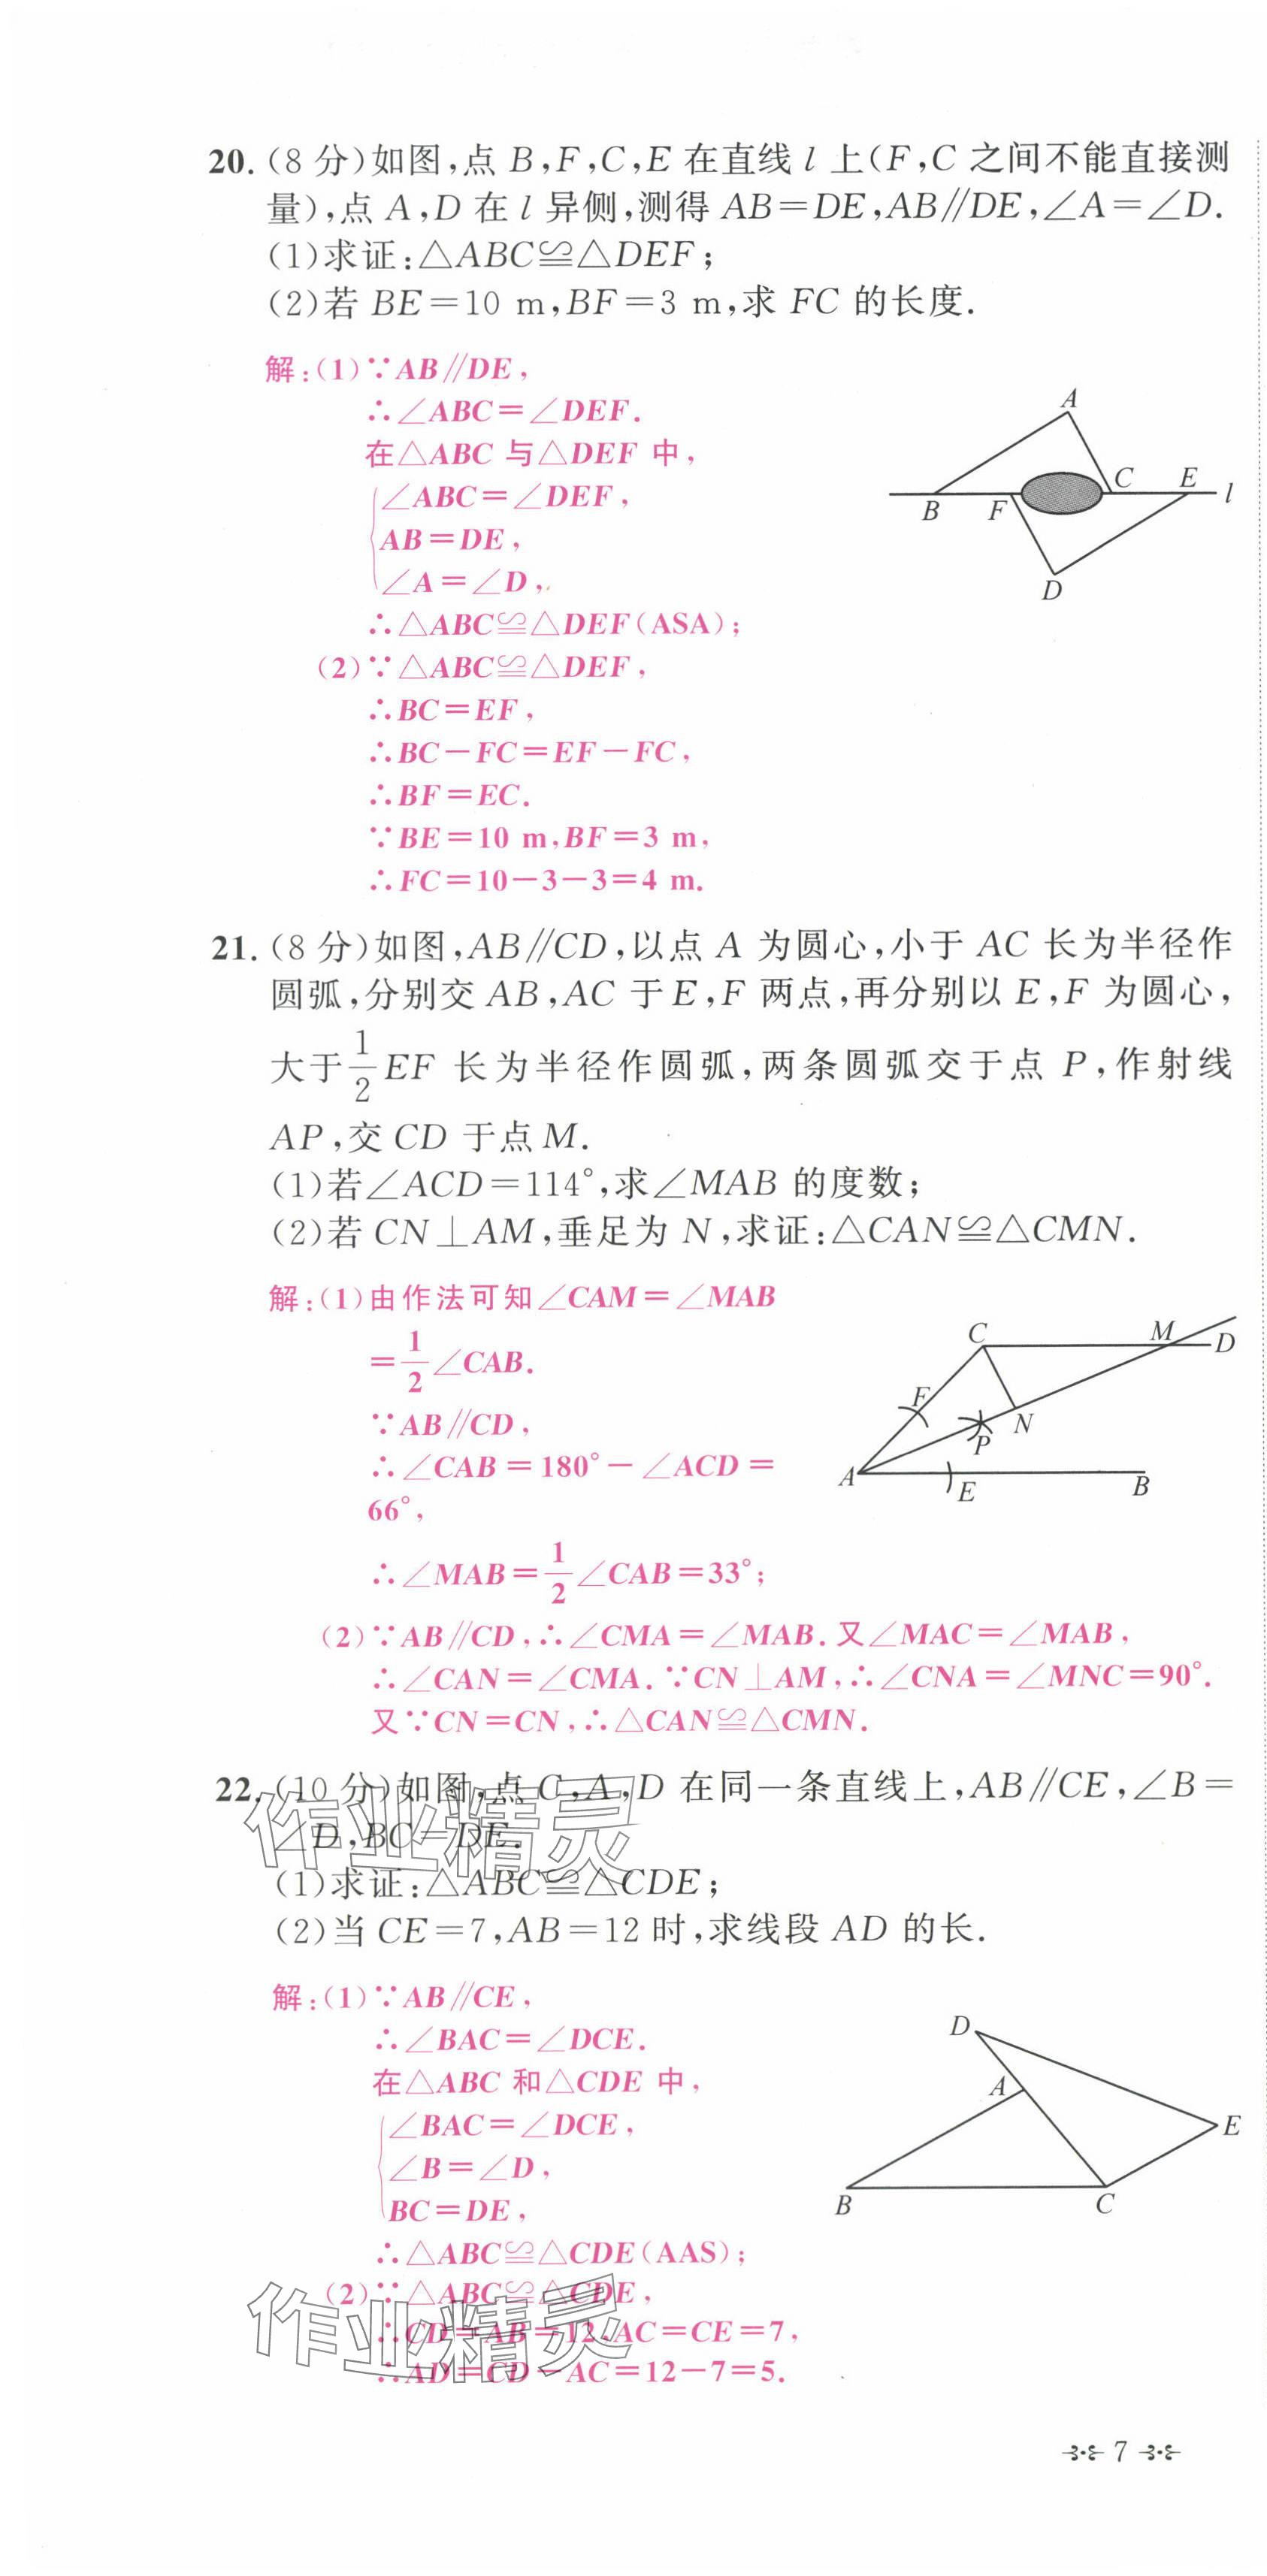 20.(8 分)如图,点 B,F,C,E 在直线 l 上(F,C 之间不能直接测
量),点 A,D 在 l 异侧,测得 AB=DE,AB∥DE,∠A=∠D.
(1)求证:△ABC≌△DEF;
(2)若 BE=10 m,BF=3 m,求 FC 的长度.
解:(1)∵AB∥DE,
∴∠ABC=∠DEF.
在△ABC 与△DEF 中,
∠ABC=∠DEF,
AB=DE,
∠A=∠D,
∴△ABC≌△DEF(ASA);
(2)∵△ABC≌△DEF,
∴BC=EF,
∴BC-FC=EF-FC,
∴BF=EC.
∵BE=10 m,BF=3 m,
∴FC=10-3-3=4 m.
A
C
E
l
B
F
D
21.(8 分)如图,AB∥CD,以点 A 为圆心,小于 AC 长为半径作
圆弧,分别交 AB,AC 于 E,F 两点,再分别以 E,F 为圆心,
大于1/2EF 长为半径作圆弧,两条圆弧交于点 P,作射线
AP,交 CD 于点 M.
(1)若∠ACD=114°,求∠MAB 的度数;
(2)若 CN⊥AM,垂足为 N,求证:△CAN≌△CMN.
解:(1)由作法可知∠CAM=∠MAB
=1/2∠CAB.
∵AB∥CD,
∴∠CAB=180°-∠ACD=
66°,
∴∠MAB=1/2∠CAB=33°;
C
M
D
F
N
P
A
E
B
(2)∵AB∥CD,∴∠CMA=∠MAB.又∠MAC=∠MAB,
∴∠CAN=∠CMA.∵CN⊥AM,∴∠CNA=∠MNC=90°.
又∵CN=CN,∴△CAN≌△CMN.
22.(10 分)如图,点 C,A,D 在同一条直线上,AB∥CE,∠B=
∠D,BC=DE.
作业精灵
(1)求证:△ABC≌△CDE;
(2)当 CE=7,AB=12 时,求线段 AD 的长.
解:(1)∵AB∥CE,
∴∠BAC=∠DCE.
在△ABC 和△CDE 中,
∠BAC=∠DCE,
∠B=∠D,
BC=DE,
∴△ABC≌△CDE(AAS);
(2)∵△ABC≌△CDE,
∴CD=AB=12,AC=CE=7,
∴AD=CD-AC=12-7=5.
作业精灵
D
A
E
B
C
7